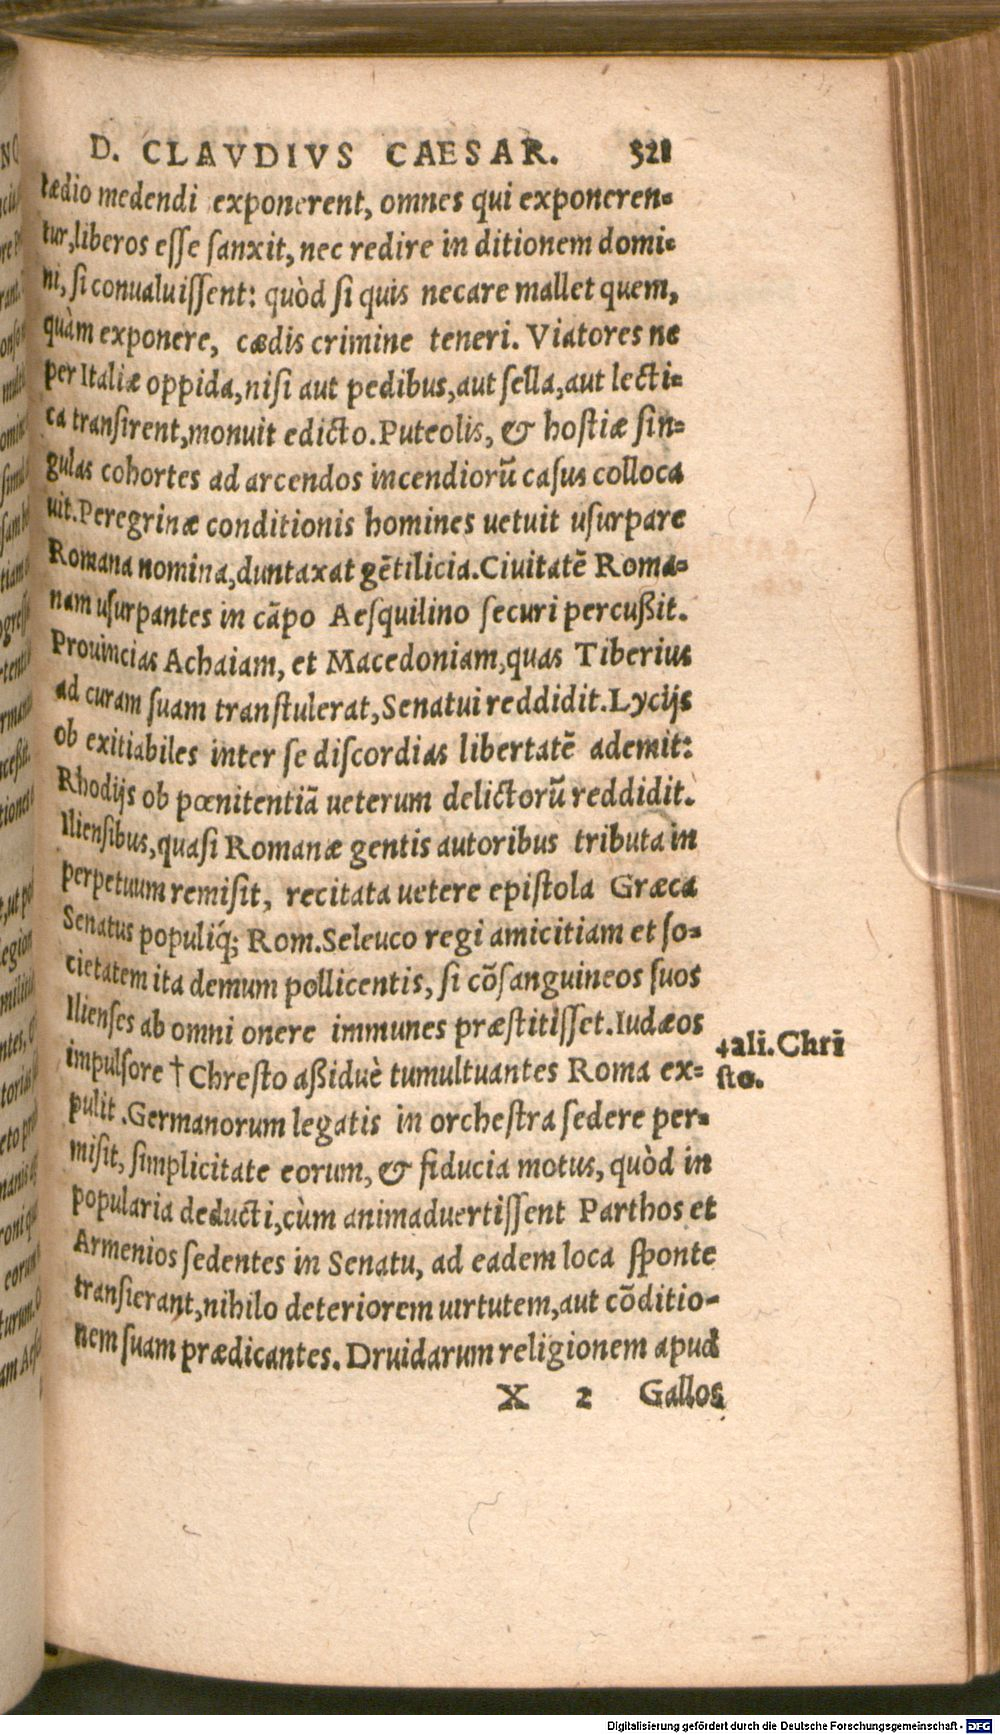 D. CLAVDIVS CAESAR. 321
tædio medendi exponerent, omnes qui exponeren-
tur, liberos esse sanxit, nec redire in ditionem domi-
ni, si conualuissent: quòd si quis necare mallet quem,
quàm exponere, cædis crimine teneri. Viatores ne
per Italiæ oppida, nisi aut pedibus, aut sella, aut lecti-
ca transirent, monuit edicto. Puteolis, & hostiæ sin-
gulas cohortes ad arcendos incendiorũ casus colloca
uit. Peregrinæ conditionis homines uetuit usurpare
Romana nomina, duntaxat gẽtilicia. Ciuitatẽ Roma-
nam usurpantes in cãpo Aesquilino securi percußit.
Prouincias Achaiam, et Macedoniam, quas Tiberius
ad curam suam transtulerat, Senatui reddidit. Lycijs
ob exitiabiles inter se discordias libertatẽ ademit:
Rhodijs ob pœnitentiã ueterum delictorũ reddidit.
Iliensibus, quasi Romanæ gentis autoribus tributa in
perpetuum remisit, recitata uetere epistola Græca
Senatus populiq́; Rom. Seleuco regi amicitiam et so-
cietatem ita demum pollicentis, si cõsanguineos suos
Ilienses ab omni onere immunes præstitisset. Iudæos
impulsore † Chresto aßiduè tumultuantes Roma ex-
pulit. Germanorum legatis in orchestra sedere per-
misit, simplicitate eorum, & fiducia motus, quòd in
popularia deducti, cùm animaduertissent Parthos et
Armenios sedentes in Senatu, ad eadem loca sponte
transierant, nihilo deteriorem uirtutem, aut cõditio-
nem suam prædicantes. Druidarum religionem apud
X 2 Gallos
†ali. Chri
sto.
Digitalisierung gefördert durch die Deutsche Forschungsgemeinschaft - DFG